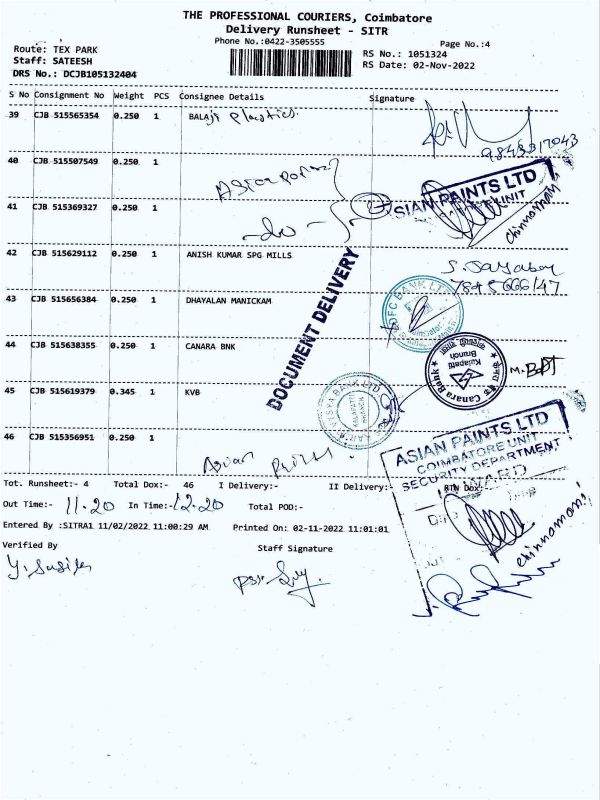 THE PROFESSIONAL COURIERS, Coimbatore
Delivery Runsheet - SITR
Phone No.:0422-3505555
Page No.:4
Route: TEX PARK
RS No.: 1051324
Staff: SATEESH
RS Date: 02-Nov-2022
DRS No.: DCJB105132404
S No Consignment No Weight PCS Consignee Details Signature
39 CJB 515565354 0.250 1 BALAJi Plastics.
9843317043
40 CJB 515507549 0.250 1
ASIAN PAINTS LTD
UNIT
chinnamani
41 CJB 515369327 0.250 1
42 CJB 515629112 0.250 1 ANISH KUMAR SPG MILLS
DOCUMENT DELIVERY
43 CJB 515656384 0.250 1 DHAYALAN MANICKAM
HDFC BANK LTD
44 CJB 515638355 0.250 1 CANARA BNK
Canara Bank
Kalapatti
Branch
45 CJB 515619379 0.345 1 KVB
KARUR VYSYA BANK LTD
KALAPATTI
BRANCH
46 CJB 515356951 0.250 1
Asian
ASIAN PAINTS LTD
COIMBATORE UNIT
SECURITY DEPARTMENT
INWARD
chinnamani
Tot. Runsheet:- 4 Total Dox:- 46 I Delivery:- II Delivery:- RTN Dox:-
Out Time:- 11.20 In Time:- 12.20 Total POD:-
Entered By :SITRA1 11/02/2022 11:00:29 AM Printed On: 02-11-2022 11:01:01
Verified By Staff Signature